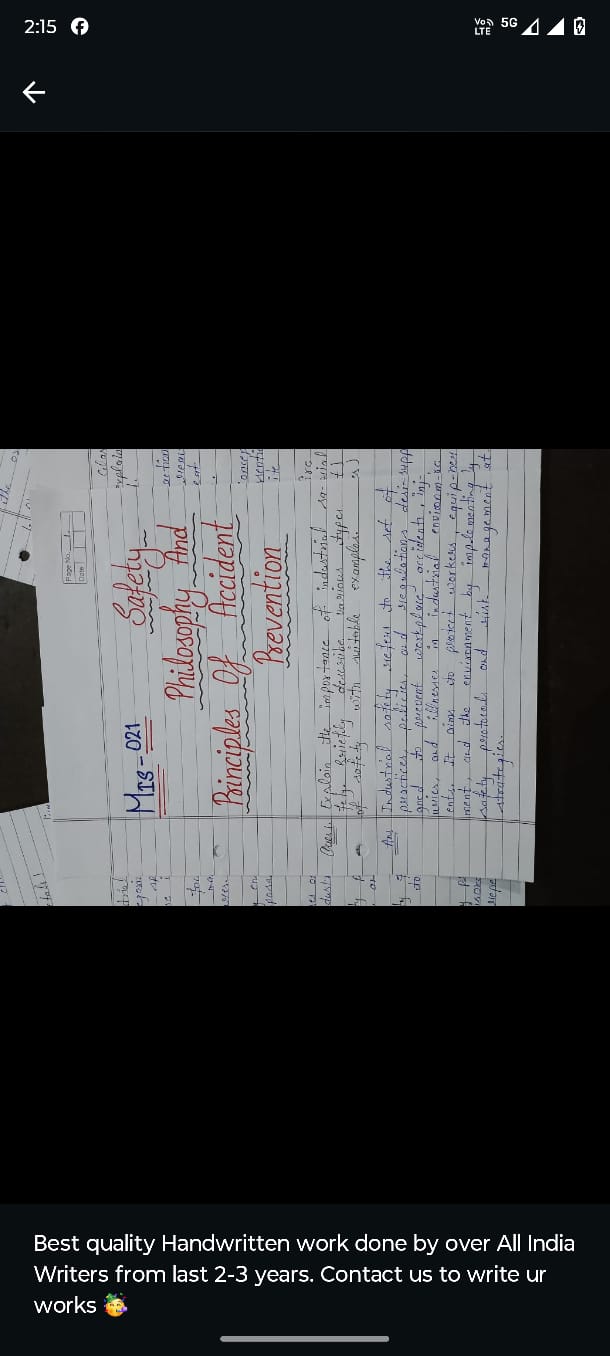 2:15
Vo))
LTE
5G
Page No. 1
Date
MIS-021 Safety
Philosophy And
Principles Of Accident
Prevention
Ques.1. Explain the importance of industrial sa-
fety. Briefly describe various types
of safety with suitable examples.
Ans Industrial safety refers to the set of
practices, policies, and regulations desi-
gned to prevent workplace accidents, inj-
uries, and illnesses in industrial environm-
ents. It aims to protect workers, equip-
ment, and the environment by implementing
safety protocols and risk management
strategies.
Best quality Handwritten work done by over All India
Writers from last 2-3 years. Contact us to write ur
works 🥳